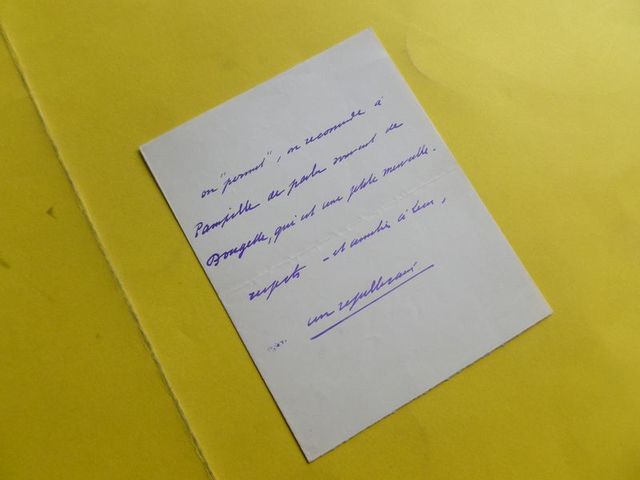 on "permet", on recommande à
Pampille de parler souvent de
Bougette, qui est une petite merveille.
respects - et amitiés à Léon,
un républicain